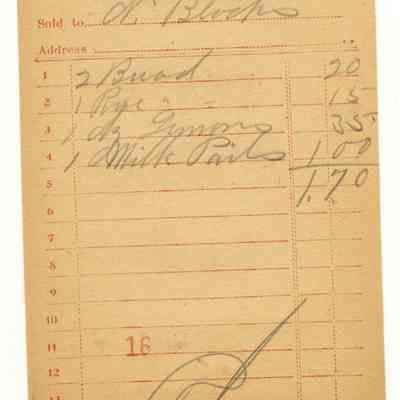 Sold to N. Blocks
Address
1 2 Bread 20
2 1 Rye " " 15
3 1 dz Lemons 35
4 1 Milk Pails 1 00
5 1.70
6
7
8
9
10
11 16
12
13